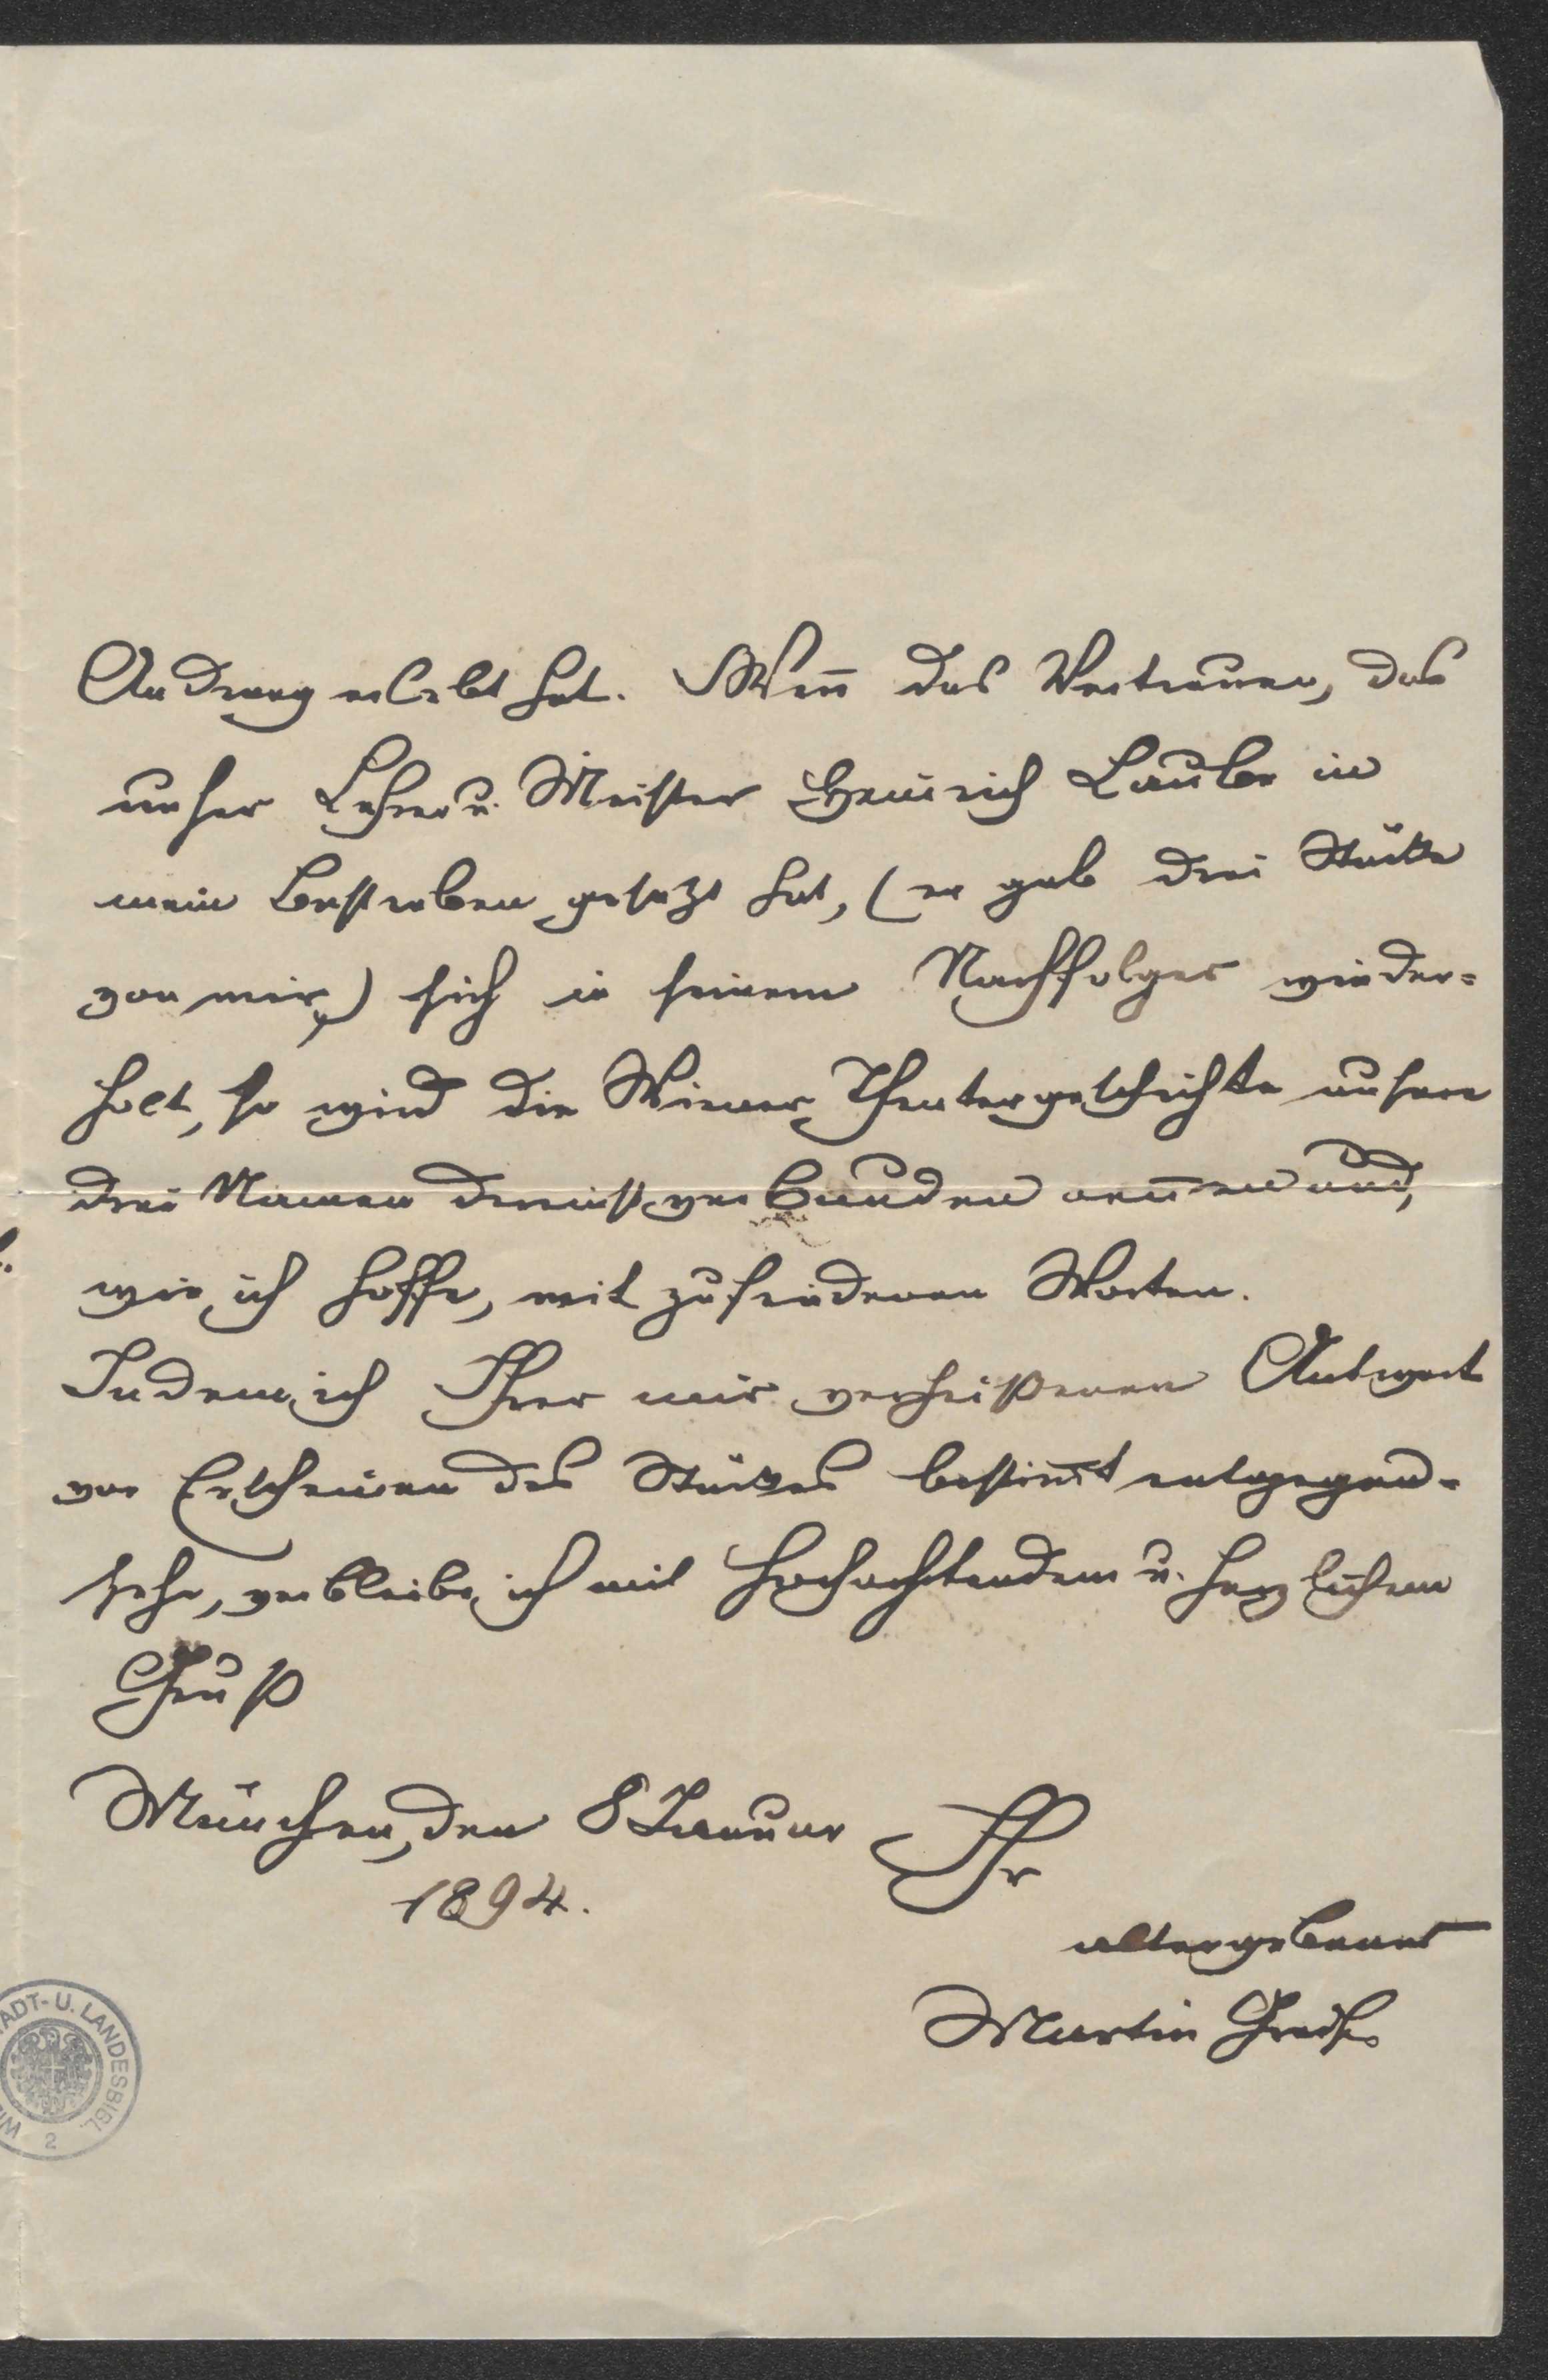 Andrang erlebt hat. Weñ das Vertrauen, das
unser Lehrer u. Meister Heinrich Laube in
mein Bestreben gesetzt hat, (er gab drei Stücke
von mir) sich in seinem Nachfolger wieder=
holt, so wird die Wiener Theatergeschichte unsere
drei Namen dereinst verbunden neñen und,
wie ich hoffe, mit zufriedenen Worten.
Indem ich Ihrer mir verheißenen Antwort
vor Erscheinen des Stückes bestim̃t entgegen-
sehe, verbleibe ich mit hochachtendem u. herzlichem
Gruß
München, den 8 Januar
1894.
Ihr
altergebener
Martin Greif
ADT- U. LANDESBIBL.
WI
2